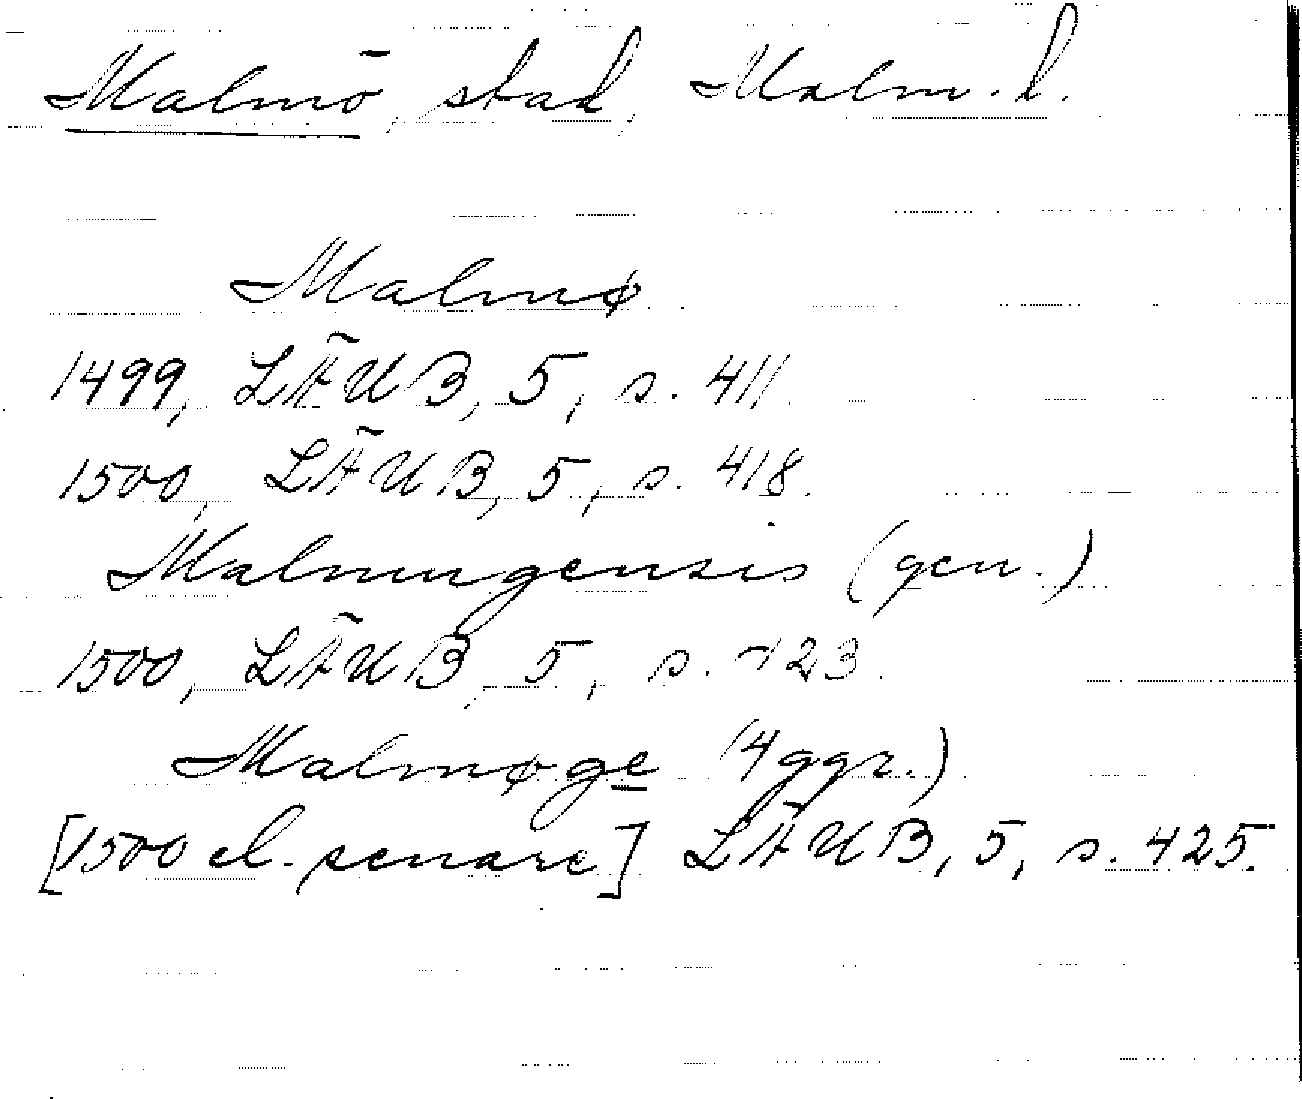 Malmö, stad, Malm. l.
Malmø
1499, LÄUB, 5, s. 411
1500, LÄUB, 5, s. 418.
Malmugensis (gen.)
1500, LÄUB, 5, s. 423.
Malmøge (4 ggr.)
[1500 el. senare] LÄUB, 5, s. 425.